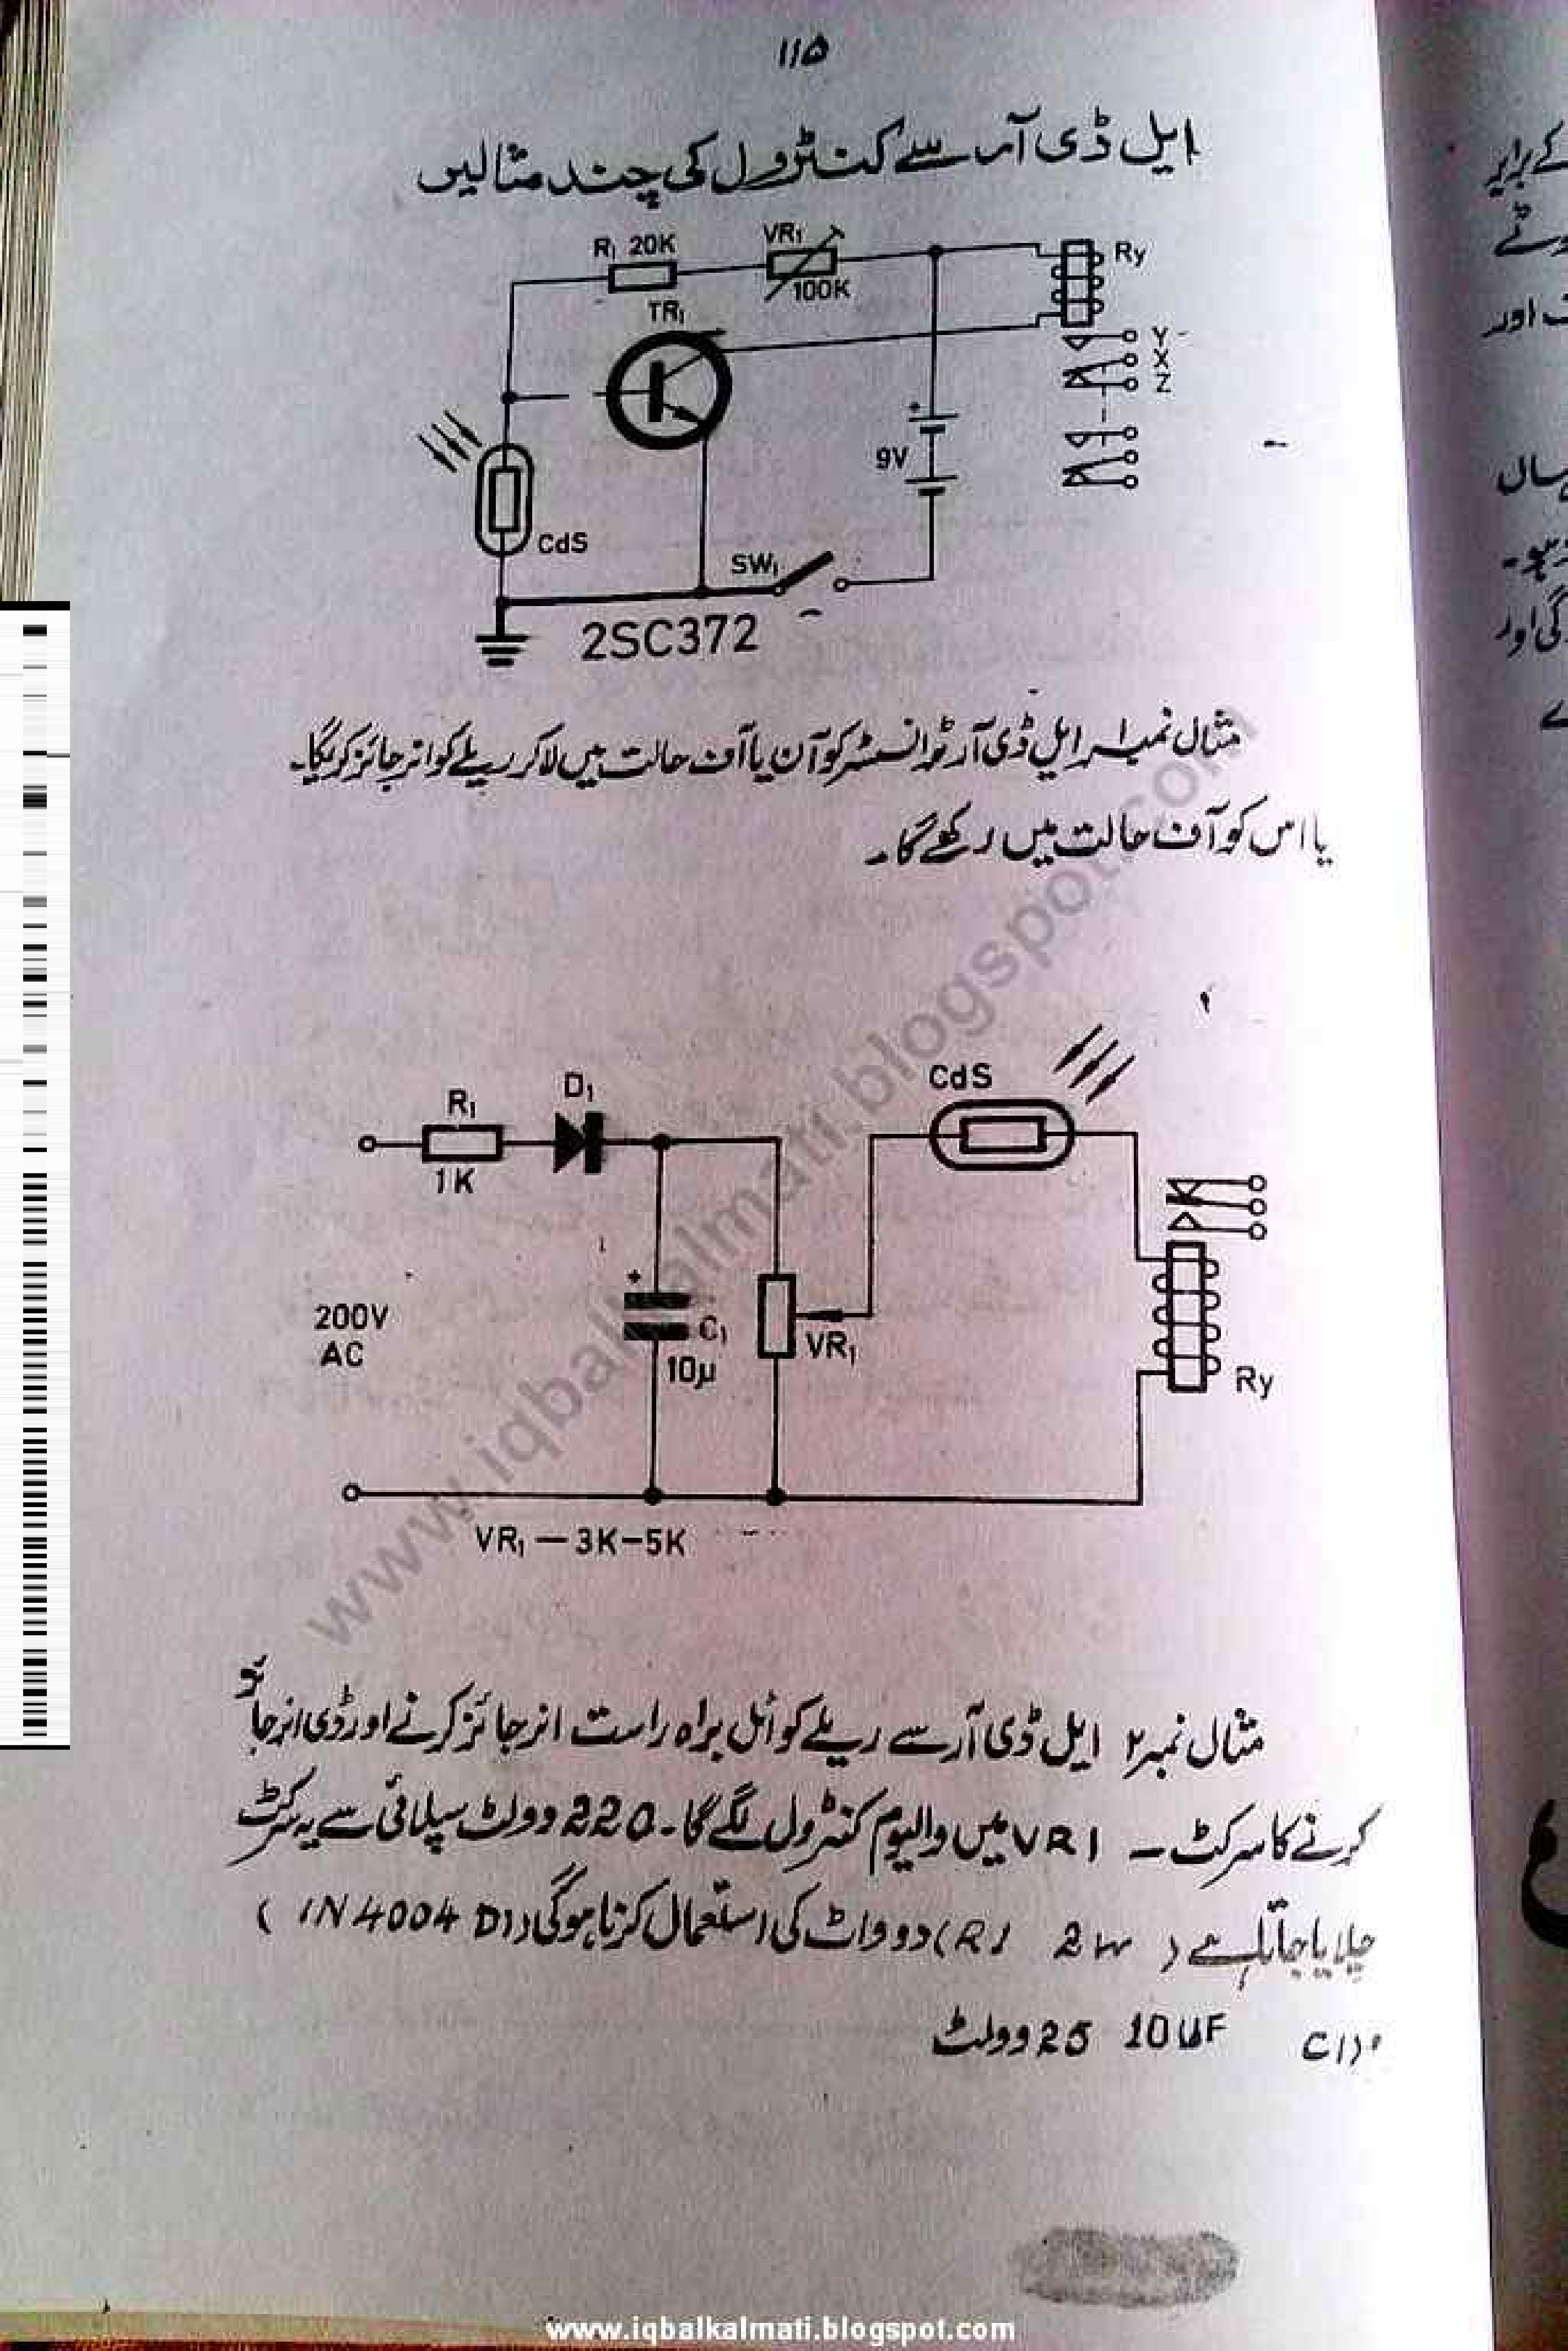 ۱۱۵
ایل ڈی آر سے کنٹرول کی چند مثالیں
R1 20K
VR1
100K
Ry
TR1
Y
X
Z
9V
CdS
SW1
2SC372
مثال نمبر۱۔ ایل ڈی آر ٹرانسسٹر کو آن یا آف حالت میں لا کر ریلے کو انرجائز کریگا۔
یا اس کو آف حالت میں رکھے گا۔
CdS
D1
R1
1K
200V
AC
C1
10μ
VR1
Ry
VR1 — 3K–5K
مثال نمبر۲ ایل ڈی آر سے ریلے کوائل براہ راست انرجائز کرنے اور ڈی انرجائز
کرنے کا سرکٹ — VR1 میں والیوم کنٹرول لگے گا۔ 220 وولٹ سپلائی سے یہ سرکٹ
چلایا جاتا ہے (R1 2W) دو واٹ کی استعمال کرنا ہوگی (D1 1N4004)
C1 10UF 25 وولٹ
کے برابر
اور
گی اور
www.iqbalkalmati.blogspot.com
www.iqbalkalmati.blogspot.com